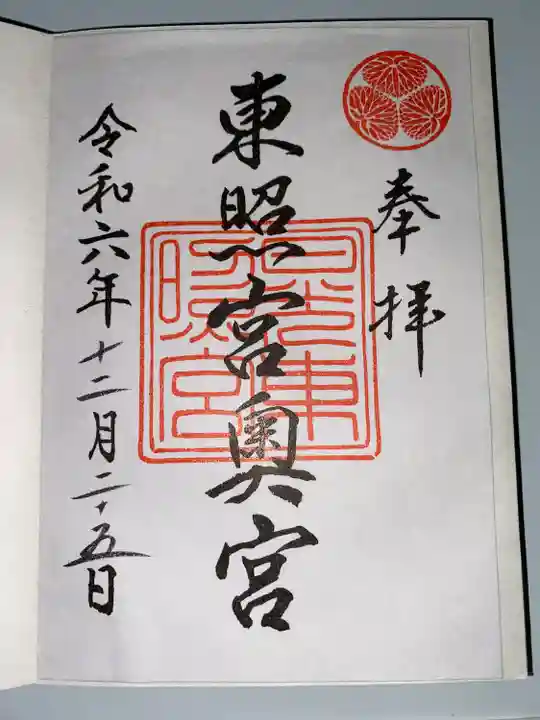 奉拝
東照宮奥宮
日光東照宮
令和六年十二月二十五日